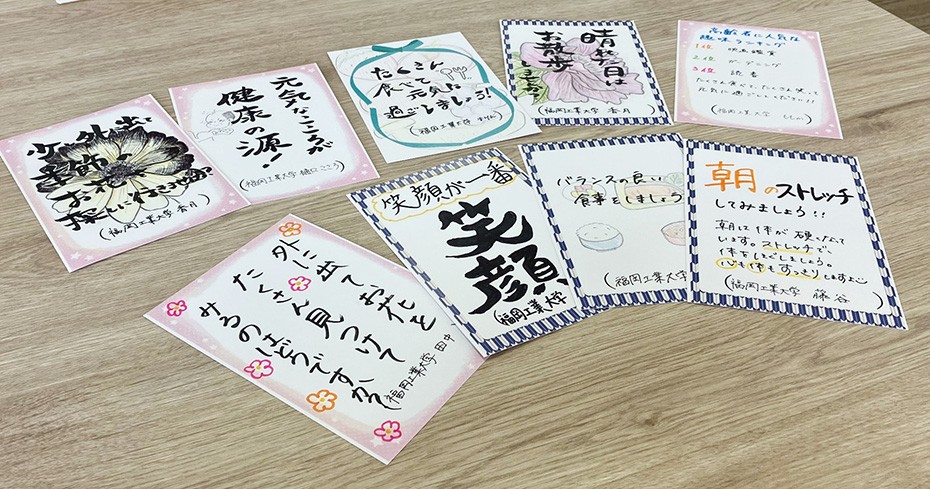 少し外出し
季節の
お花
探しに行こう
(福岡工業大学 香月)
元気なこころが
健康の源!
(福岡工業大学 樋口こころ)
たくさん
食べて
元気に
過ごしましょう!
(福岡工業大学 )
晴れた日は
お散歩
しませんか
(福岡工業大学 香月)
高齢者に人気な
趣味ランキング
1位 映画鑑賞
2位 ガーデニング
3位 読書
たくさん食べて、たくさん笑って
元気に過ごしてください!!
(福岡工業大学 )
外に出て お花を
たくさん見つけて
みるのはどうですか
(福岡工業大学 田中)
笑顔が一番
笑顔
(福岡工業大学
バランスの良い
食事をしましょう
(福岡工業大学
朝のストレッチ
してみましょう!!
朝は体が硬くなって
います。ストレッチで、
体をほぐしましょう。
心も体もすっきりしますよ
(福岡工業大学 篠谷)